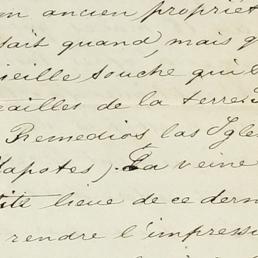 un ancien propriét
sait quand, mais q
ieille souche qui
ailles de la terre
Remedios las Igle
apotes). La veine
tite lieue de ce dern
rendre l'impressi